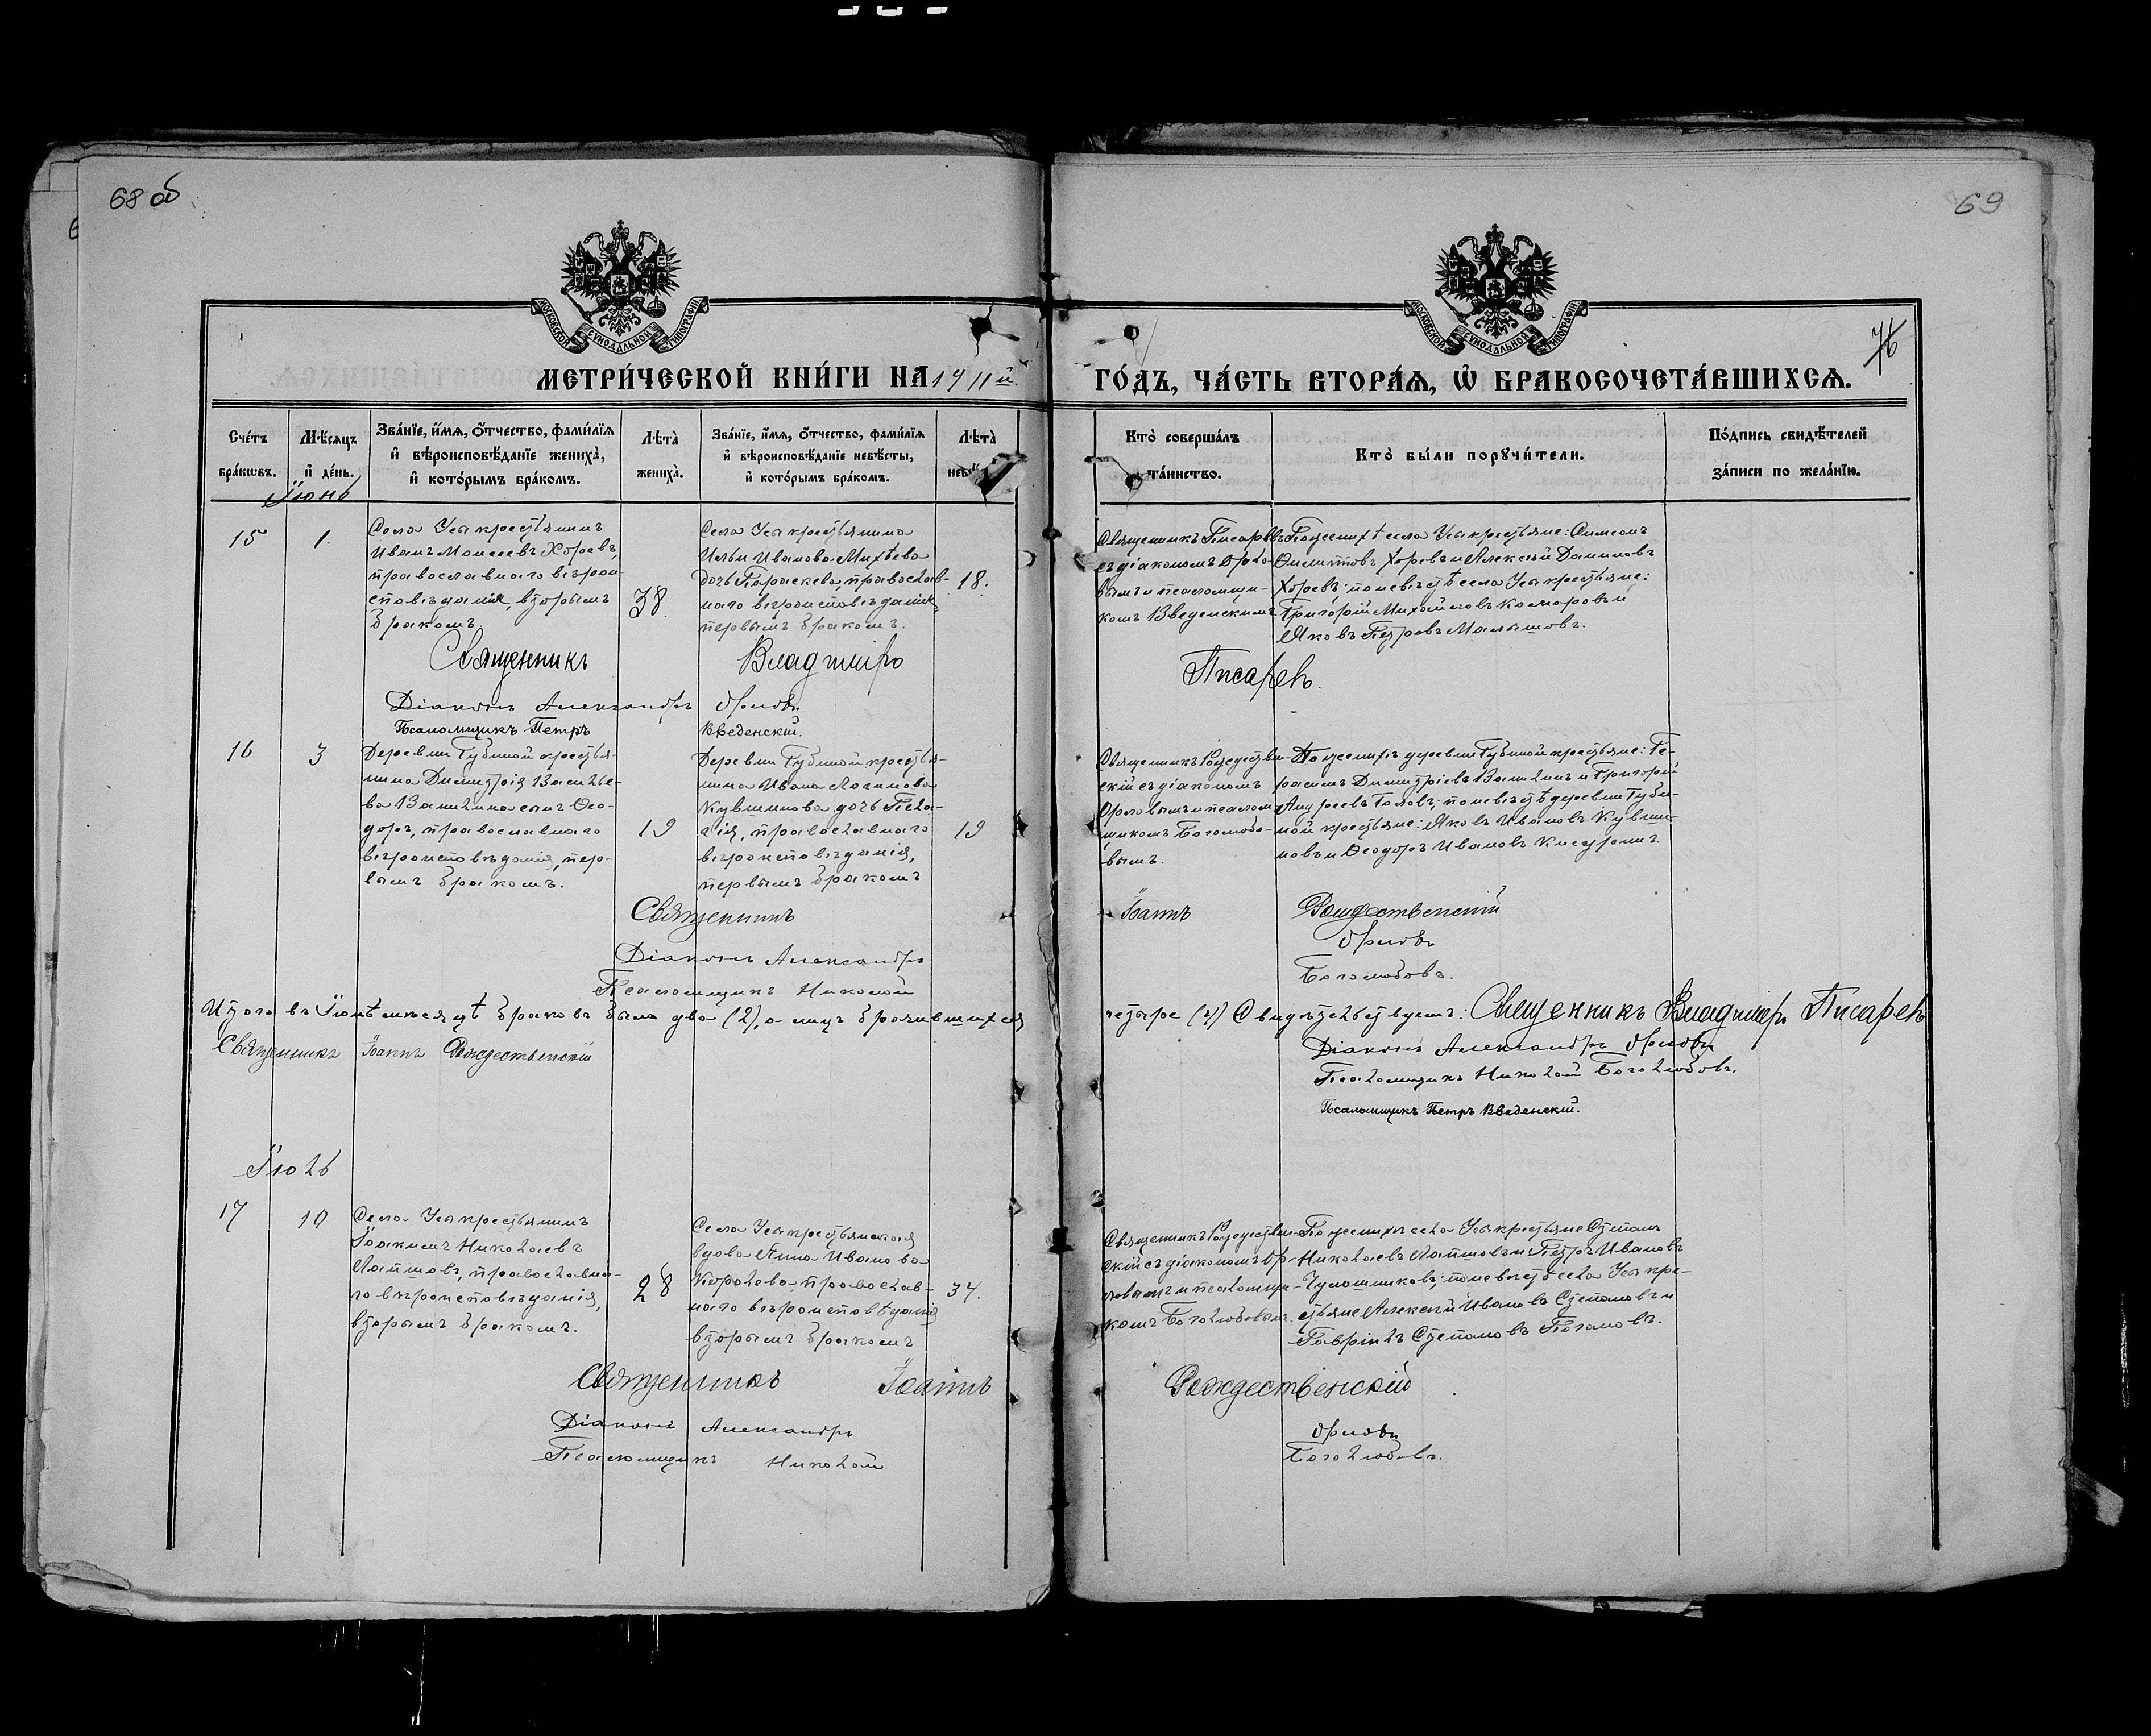 68 об
69
МОСКОВСКОЙ СѴНОДАЛЬНОЙ ТИПОГРАФІИ
МОСКОВСКОЙ СѴНОДАЛЬНОЙ ТИПОГРАФІИ
76
МЕТРИ́ЧЕСКОЙ КНИ́ГИ НА 1911й
ГО́ДЪ, ЧА́СТЬ ВТОРА́Ѧ, Ѡ҆ БРАКОСОЧЕТА́ВШИХСѦ.
Сче́тъ бра́кѡвъ.
Мѣ́сяцъ и҆ де́нь.
Зва́нїе, и҆́мѧ, ѻ҆́тчество, фами́лїѧ
и҆ вѣроисповѣ́данїе жениха̀,
и҆ кото́рымъ бра́комъ.
Лѣта̀ жениха̀.
Зва́нїе, и҆́мѧ, ѻ҆́тчество, фами́лїѧ
и҆ вѣроисповѣ́данїе невѣ́сты,
и҆ кото́рымъ бра́комъ.
Лѣта̀
Кто̀ соверша́лъ
та́инство.
Кто̀ бы́ли порꙋчи́тели.
По́дпись свидѣ́телей
за́писи по жела́нїю.
Іюнь
15
1.
Села Усы крестьянинъ
Иванъ Моисеевъ Хоревъ,
православнаго вѣрои-
сповѣданія, вторымъ
бракомъ.
38.
Села Усы крестьянина
Ильи Иванова Михѣева
дочь Параскева православ-
наго вѣроисповѣданія,
первымъ бракомъ.
18.
Священникъ Писаревъ
съ діакономъ Орло-
вымъ и псаломщи-
комъ Введенскимъ
По женихѣ села Усы крестьяне: Симеонъ
Филипповъ Хоревъ и Алексѣй Даниловъ
Хоревъ; по невѣстѣ села Усы крестьяне:
Григорій Михайловъ Комаровъ и
Яковъ Петровъ Малышовъ.
Священникъ Владиміръ Писаревъ.
Діаконъ Александръ Орловъ
Псаломщикъ Петръ Введенскій.
16
3
Деревни Губиной крестья-
нина Димитрія Василье-
ва Вашкина сынъ Ѳео-
доръ, православнаго
вѣроисповѣданія, пер-
вымъ бракомъ.
19
Деревни Губиной крестья-
нина Ивана
Кувшинова дочь Пела-
гія, православнаго
вѣроисповѣданія,
первымъ бракомъ
19
Священникъ Рождествен-
скій съ діакономъ
Орловымъ и псалом-
щикомъ Боголюбо-
вымъ.
По женихѣ деревни Губиной крестьяне: Ге-
расимъ Димитріевъ Вашкинъ и Григорій
Андреевъ по невѣстѣ деревни Губи-
ной крестьяне: Яковъ Ивановъ Кувши-
новъ и Ѳеодоръ Ивановъ
Священникъ Іоаннъ Рождественскій
Діаконъ Александръ Орловъ
Псаломщикъ Николай Боголюбовъ.
Итого въ Іюнѣ мѣсяцѣ браковъ было два (2), а лицъ бракившихся
четыре (4) Свидѣтельствуемъ: Священникъ Владиміръ Писаревъ
Священникъ Іоаннъ Рождественскій
Діаконъ Александръ Орловъ
Псаломщикъ Николай Боголюбовъ.
Псаломщикъ Петръ Введенскій.
Іюль
17
10
Села Усы крестьянинъ
Іоакимъ Николаевъ
Лапшовъ, православна-
го вѣроисповѣданія,
вторымъ бракомъ.
28
Села Усы крестьянская
вдова Анна Иванова
Королева, православ-
наго вѣроисповѣданія
вторымъ бракомъ
34.
Священникъ Рождествен-
скій съ діакономъ Ор-
ловымъ и псаломщи-
комъ Боголюбовымъ.
По женихѣ села Усы крестьяне Степанъ
Николаевъ Лапшовъ и Петръ Ивановъ
по невѣстѣ села Усы кре-
стьяне Алексѣй Ивановъ Степановъ и
Гавріилъ Степановъ
Священникъ Іоаннъ Рождественскій
Діаконъ Александръ Орловъ
Псаломщикъ Николай Боголюбовъ.